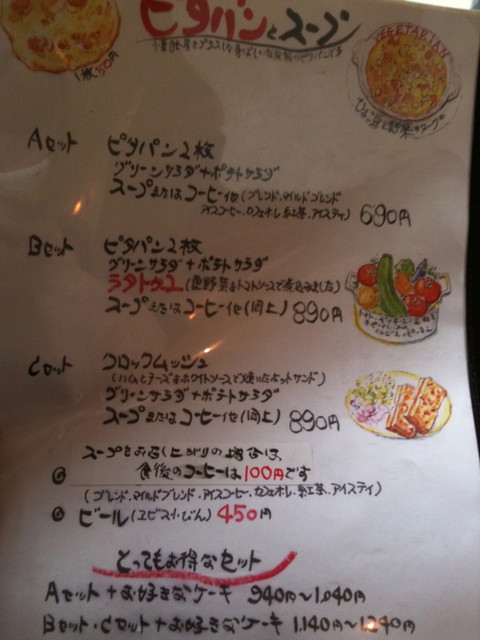 ピタパンとスープ
1枚50円
VEGETARIAN
ひよこ豆と野菜のスープ
Aセット ピタパン2枚
グリーンサラダ+ポテトサラダ
スープまたはコーヒー他(ブレンド.マイルドブレンド
アイスコーヒー.カフェオレ.紅茶.アイスティ) 690円
Bセット ピタパン2枚
グリーンサラダ+ポテトサラダ
ラタトゥユ(夏野菜をトマトソースで煮込みました)
スープまたはコーヒー他(同上) 890円
Cセット クロックムッシュ
(ハムとチーズをホワイトソースで焼いたホットサンド)
グリーンサラダ+ポテトサラダ
スープまたはコーヒー他(同上) 890円
スープをお召し上がりの場合は、
食後のコーヒーは100円です
(ブレンド.マイルドブレンド.アイスコーヒー.カフェオレ.紅茶.アイスティ)
ビール(エビス小びん) 450円
とってもお得なセット
Aセット+お好きなケーキ 940円~1,040円
Bセット・Cセット+お好きなケーキ 1,140円~1,240円